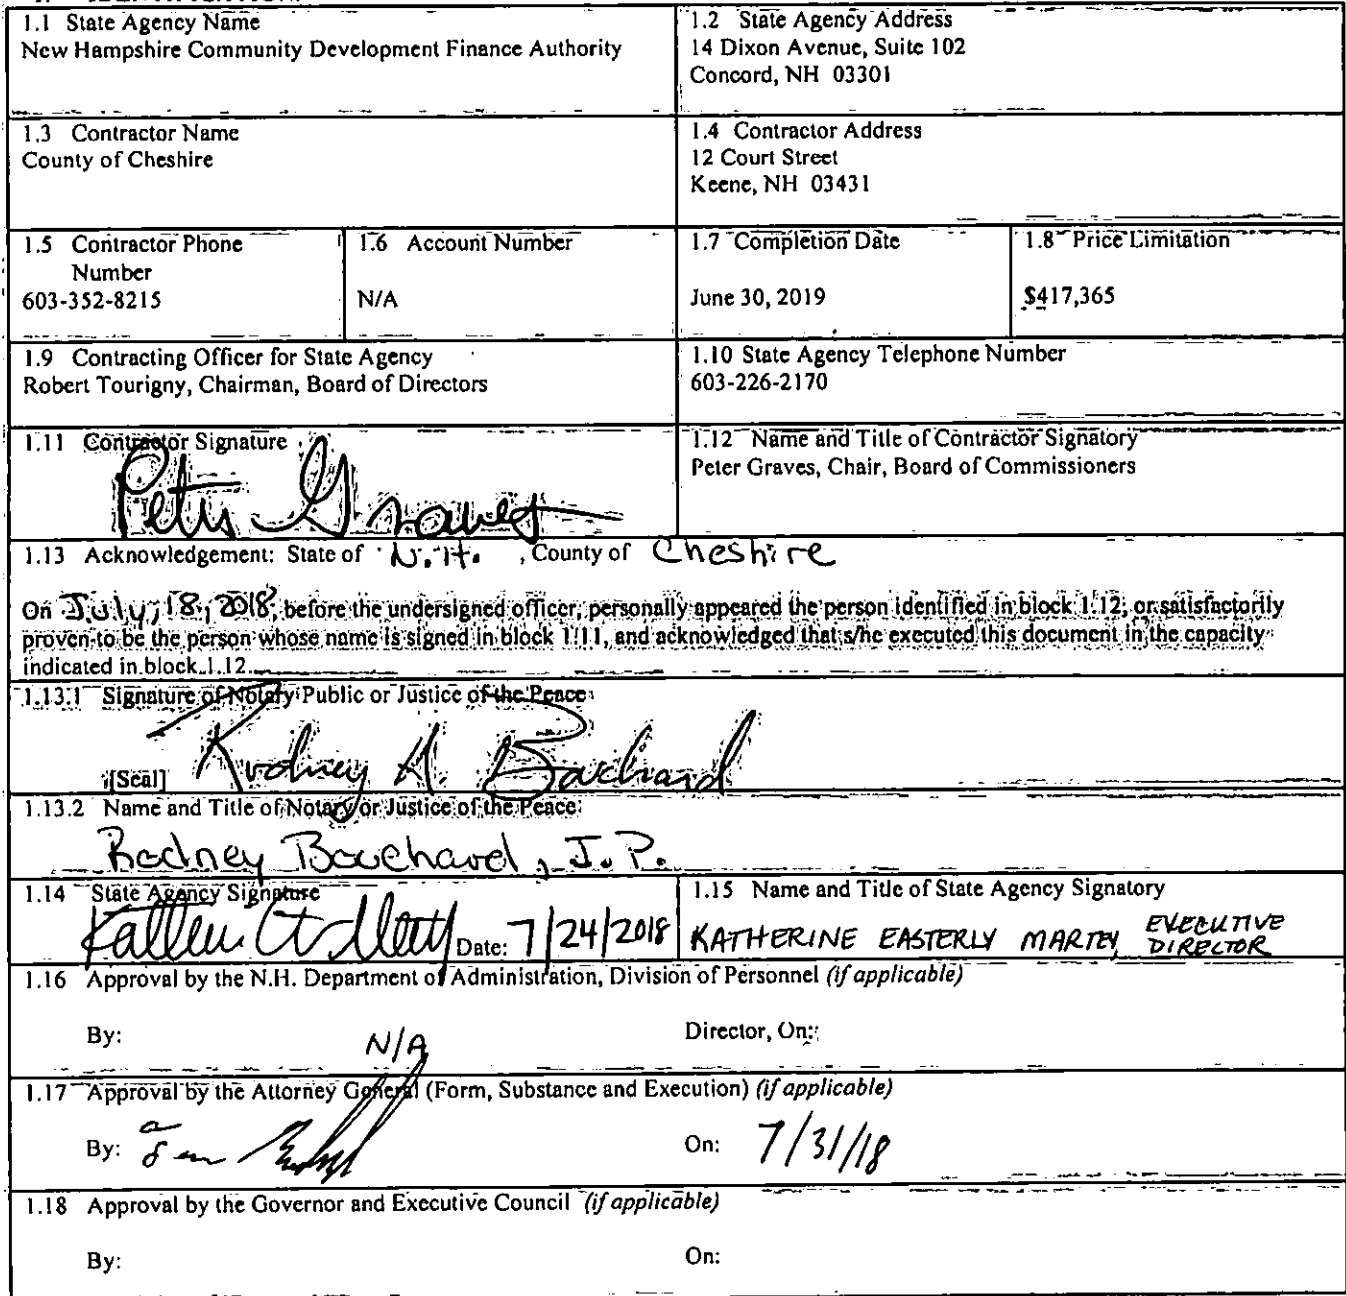 1.1 State Agency Name
New Hampshire Community Development Finance Authority
1.2 State Agency Address
14 Dixon Avenue, Suite 102
Concord, NH 03301
1.3 Contractor Name
County of Cheshire
1.4 Contractor Address
12 Court Street
Keene, NH 03431
1.5 Contractor Phone
Number
603-352-8215
1.6 Account Number
N/A
1.7 Completion Date
June 30, 2019
1.8 Price Limitation
$417,365
1.9 Contracting Officer for State Agency
Robert Tourigny, Chairman, Board of Directors
1.10 State Agency Telephone Number
603-226-2170
1.11 Contractor Signature
Peter Graves
1.12 Name and Title of Contractor Signatory
Peter Graves, Chair, Board of Commissioners
1.13 Acknowledgement: State of N.H. , County of Cheshire
On July, 18, 2018, before the undersigned officer, personally appeared the person identified in block 1.12, or satisfactorily
proven to be the person whose name is signed in block 1.11, and acknowledged that s/he executed this document in the capacity
indicated in block 1.12.
1.13.1 Signature of Notary Public or Justice of the Peace
Rodney A. Bouchard
[Seal]
1.13.2 Name and Title of Notary or Justice of the Peace
Rodney Bouchard, J.P.
1.14 State Agency Signature
Date: 7/24/2018
1.15 Name and Title of State Agency Signatory
KATHERINE EASTERLY MARTEY, EXECUTIVE
DIRECTOR
1.16 Approval by the N.H. Department of Administration, Division of Personnel (if applicable)
By:
N/A
Director, On:
1.17 Approval by the Attorney General (Form, Substance and Execution) (if applicable)
By:
On: 7/31/18
1.18 Approval by the Governor and Executive Council (if applicable)
By:
On: